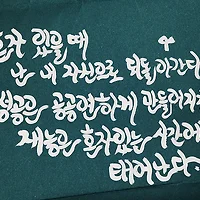 혼자 있을 때
난 내 자신으로 되돌아간다
성공은 공공연하게 만들어지지
재능은 혼자 있는 시간에
태어난다.